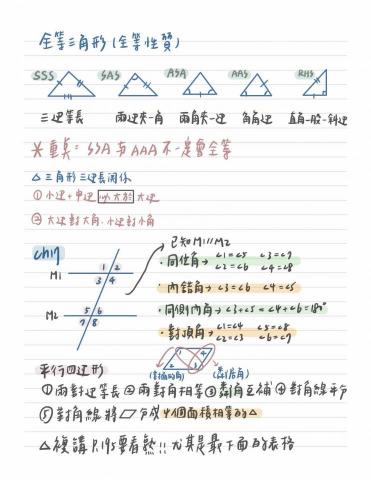 全等三角形(全等性質)
SSS SAS ASA AAS RHS
三边等長 兩边夾一角 兩角夾一边 角角边 直角一股一斜边
※重點:SSA与AAA不一定會全等
△三角形三边長関係
①小边+中边 必大於 大边
②大边對大角.小边對小角
ch17
已知M1//M2
M1 1 2 3 4
•同位角→∠1=∠5 ∠3=∠7
∠2=∠6 ∠4=∠8
•內錯角→∠3=∠6 ∠4=∠5
M2 5 6 7 8
•同側內角→∠3+∠5=∠4+∠6=180°
•對頂角→∠1=∠4 ∠5=∠8
∠2=∠3 ∠6=∠7
平行四边形
(對面的角) (鄰居角)
①兩對边等長②兩對角相等③鄰角互補④對角線平分
⑤對角線將▱分成4個面積相等的△
△複講P.195要看熟!!尤其是最下面的表格